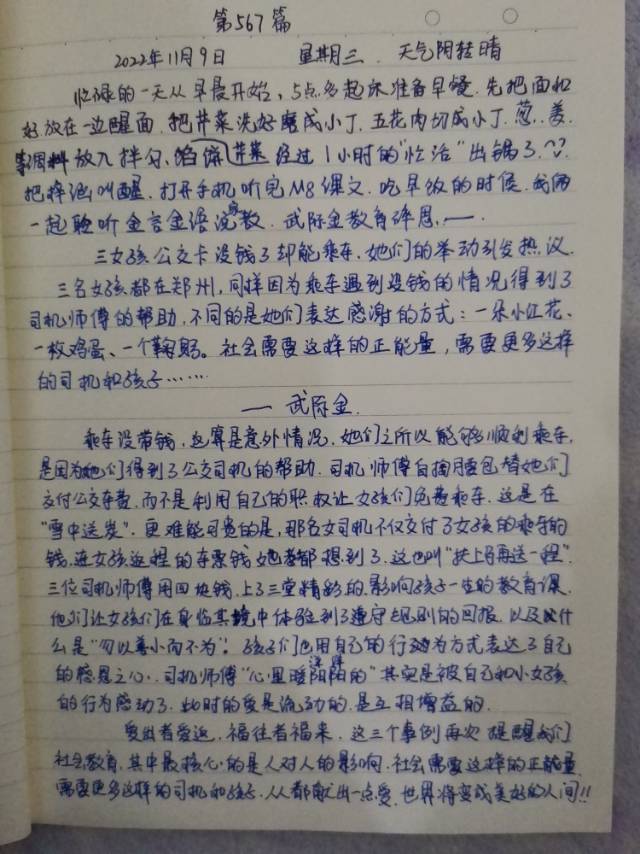 第567篇
2022年11月9日 星期三 天气阴转晴
忙碌的一天从早晨开始，5点多起床准备早餐，先把面和
好放在一边醒面，把芹菜洗好磨成小丁，五花肉切成小丁，葱、姜
等调料放入拌匀，馅饼 芹菜 经过1小时的"忙活"出锅了，??
把梓涵叫醒，打开手机听完M8课文，吃早饭的时候，我俩
一起聆听金言金语说教，武际金教育译思，——
三女孩公交卡没钱了却能乘车，她们的举动引发热议，
三名女孩都在郑州，同样因为乘车遇到没钱的情况得到了
司机师傅的帮助，不同的是她们表达感谢的方式：一朵小红花、
一枚鸡蛋、一个鞠躬。社会需要这样的正能量，需要更多这样
的司机和孩子……
——武际金.
乘车没带钱，这算是意外情况，她们之所以能够顺利乘车，
是因为她们得到了公交司机的帮助，司机师傅自掏腰包替她们
交付公交车费，而不是利用自己的职权让女孩们免费乘车，这是在
"雪中送炭"，更难能可贵的是，那名女司机不仅交付了女孩的乘车的
钱，连女孩返程的车票钱她都想到了，这也叫"扶上马再送一程"，
三位司机师傅用四块钱，上了三堂精彩的，影响孩子一生的教育课，
他们让女孩们在身临其境中体验到了遵守规则的回报，以及什
么是"勿以善小而不为"，孩子们也用自己的行动为方式表达了自己
的感恩之心，司机师傅"心里暖洋洋的"其实是被自己和小女孩
的行为感动了，此时的爱是流动的，是互相增益的，
爱出者爱返，福往者福来，这三个事例再次提醒我们
社会教育，其中最核心的是人对人的影响，社会需要这样的正能量，
需要更多这样的司机和孩子，人人都献出一点爱，世界将变成美好的人间!!